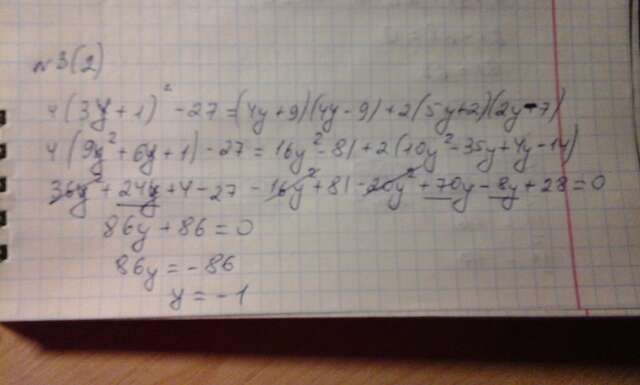 №3(2)
4(3y+1)²-27=(4y+9)(4y-9)+2(5y+2)(2y-7)
4(9y²+6y+1)-27=16y²-81+2(10y²-35y+4y-14)
36y²+24y+4-27-16y²+81-20y²+70y-8y+28=0
86y+86=0
86y=-86
y=-1